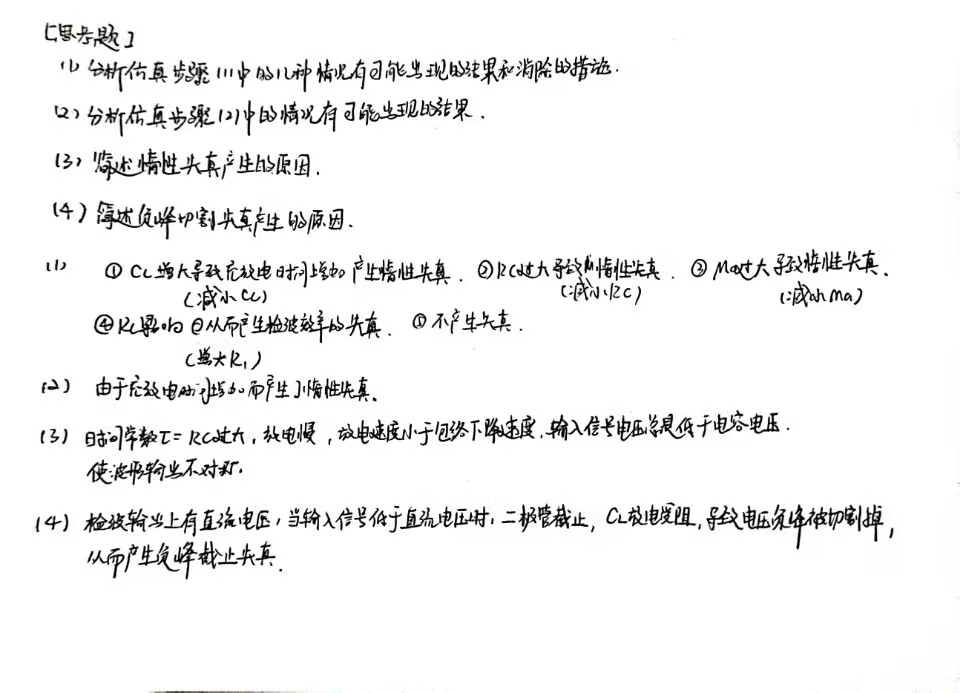 [思考题]
(1) 分析仿真步骤(1)中的几种情况有可能出现的结果和消除的措施.
(2) 分析仿真步骤(2)中的情况有可能出现的结果.
(3) 简述惰性失真产生的原因.
(4) 简述负峰切割失真产生的原因.
(1) ① CL增大导致充放电时间增加产生惰性失真. ②RC过大导致惰性失真. ③ Ma过大导致惰性失真.
(减小CL) (减小RC) (减小Ma)
④RL影响 θ从而产生检波效率的失真. ⑤不产生失真.
(增大R1)
(2) 由于充放电时间增加而产生了惰性失真.
(3) 时间常数τ=RC过大, 放电慢, 放电速度小于包络下降速度, 输入信号电压总是低于电容电压.
使波形输出不对称.
(4) 检波输出上有直流电压, 当输入信号低于直流电压时, 二极管截止, CL放电受阻, 导致电压负峰被切割掉,
从而产生负峰截止失真.